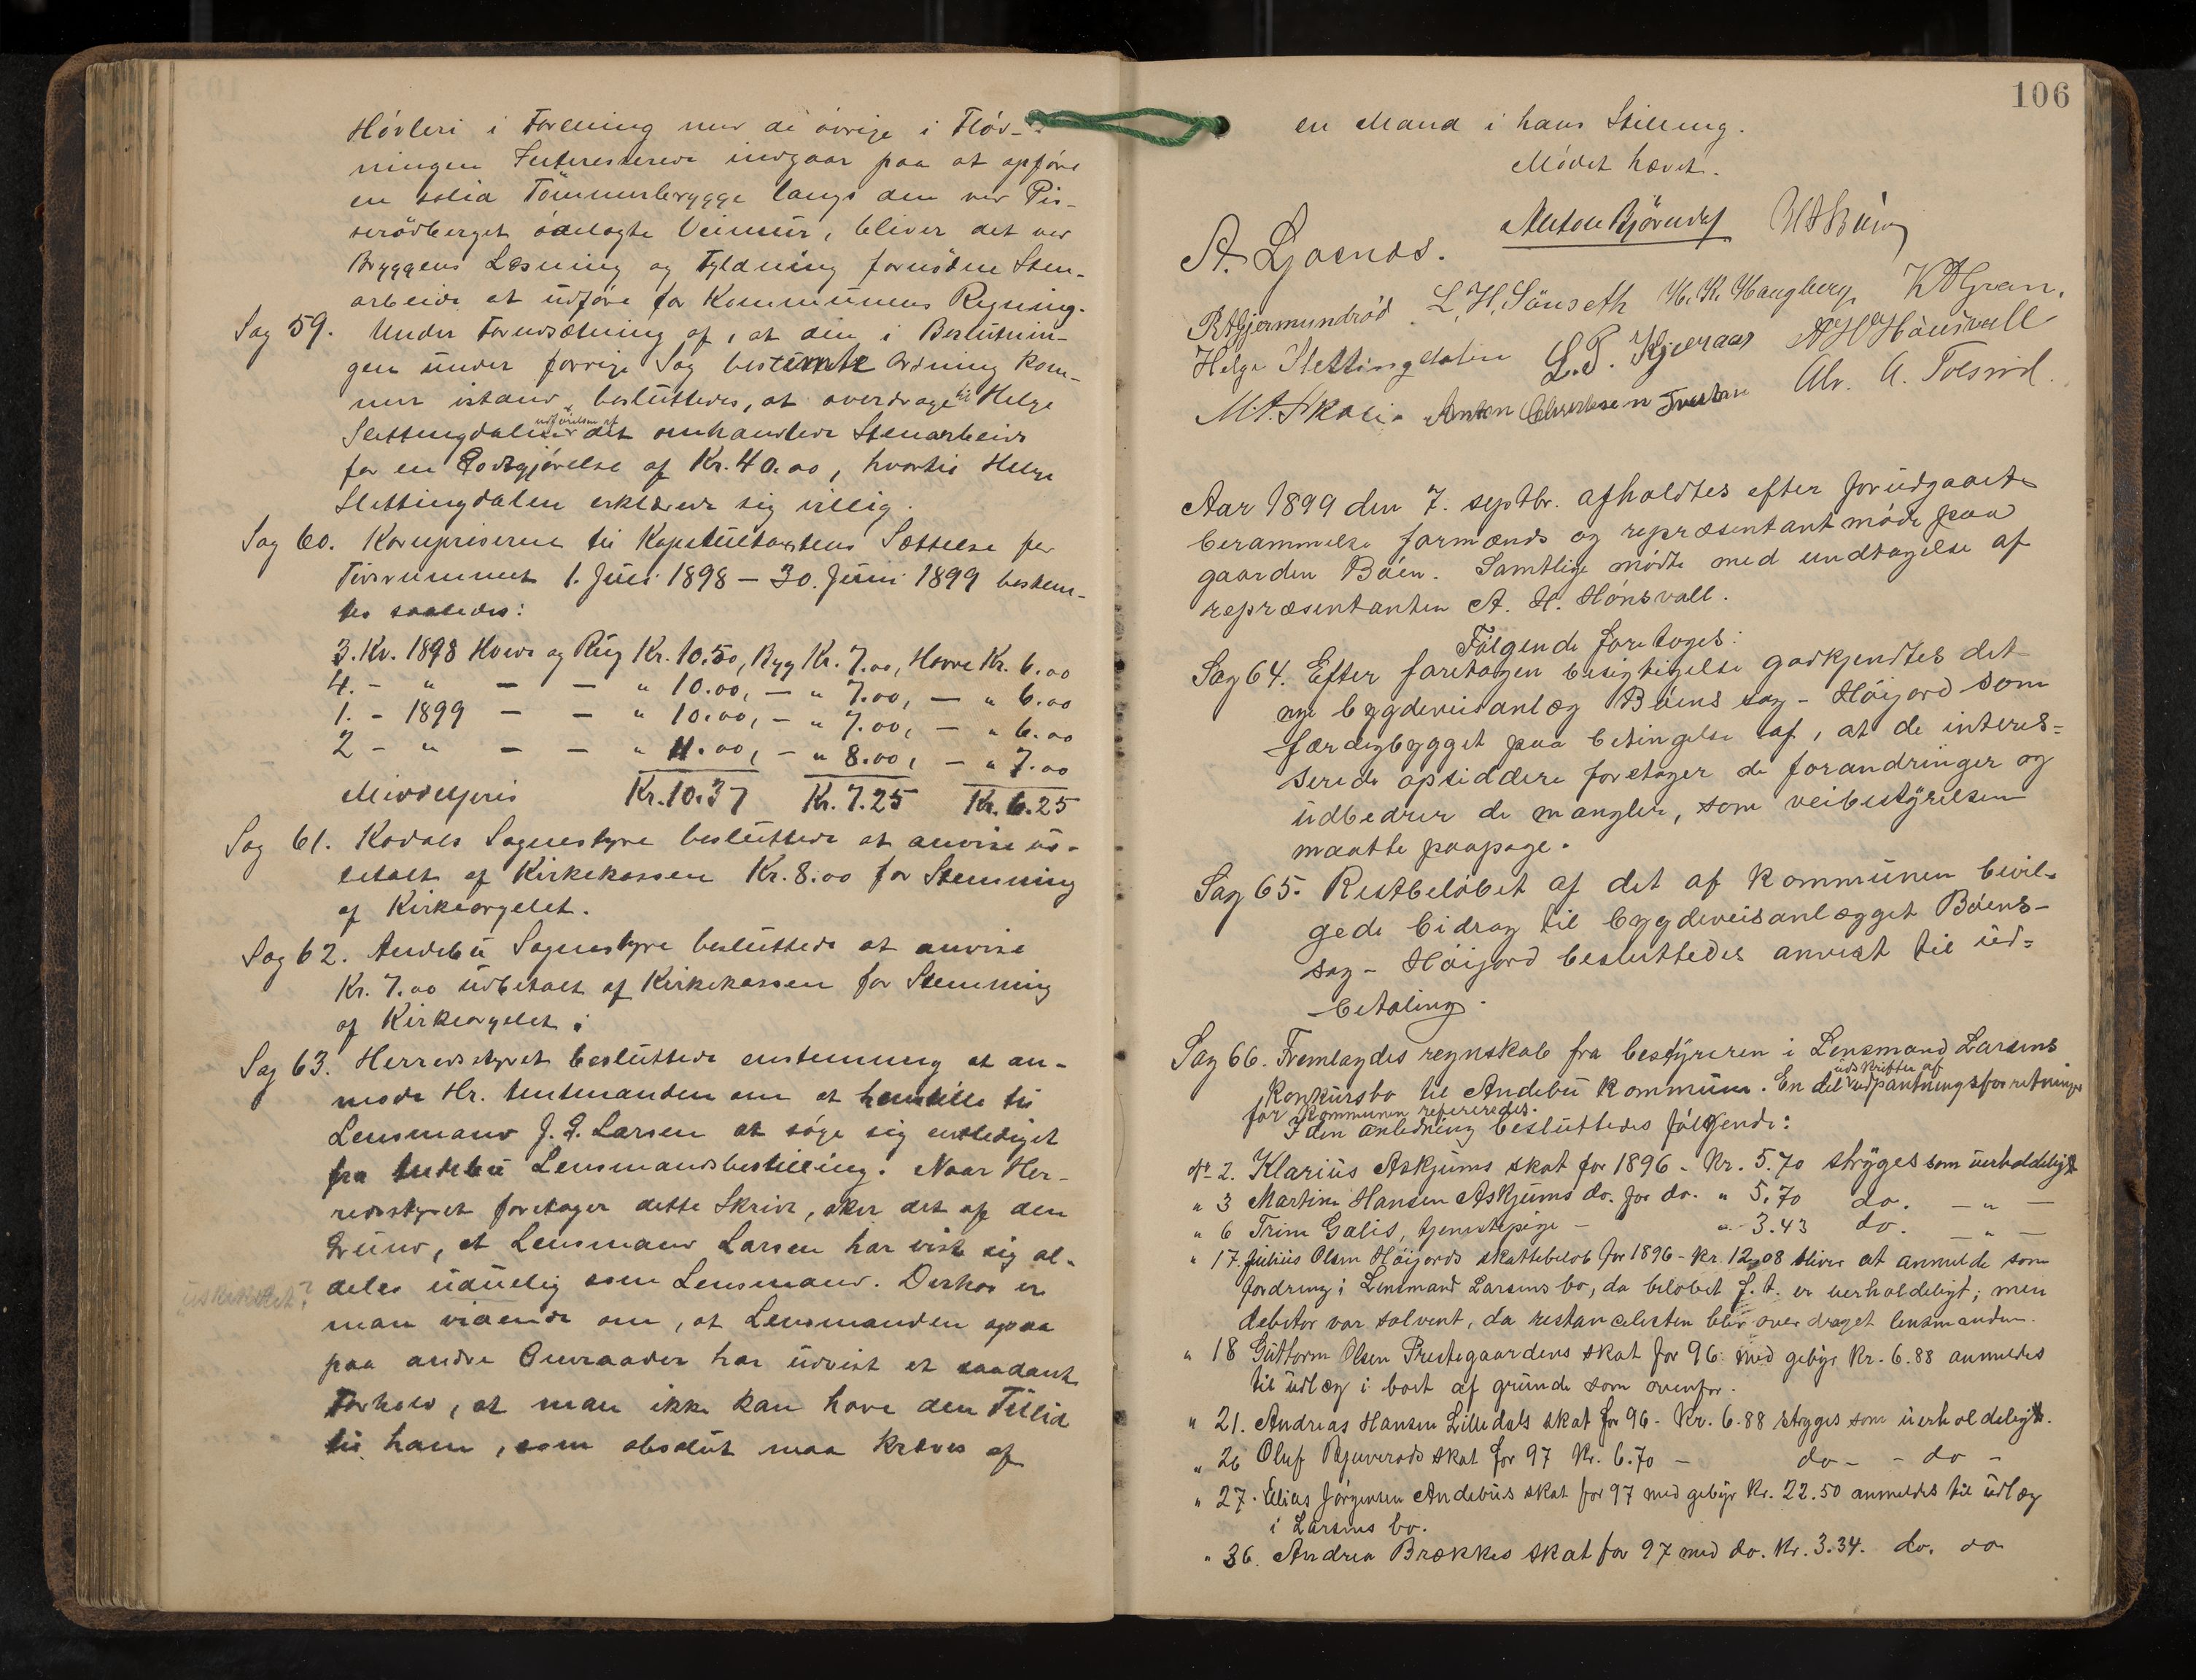 Hövleri i Forening med de øvrige i Fløv-
ningen Interesserede indgaar paa at opføre
en solid Tømmerbrygge langs den ved Pis-
serødberget ødelagte Veimur, bliver det ved
Bryggens Læsning og Fyldning fornødne Sten-
arbeide at udføre for Kommunens Regning.
Sag 59. Under Forudsætning af, at den i Beslutnin-
gen under forrige Sag bestemte Ordning kom-
mer istand, besluttedes, at overdrage til Helge
Slettingdalen udførelsen af det omhandlede Stenarbeide
for en Godtgjørelse af Kr. 40.00, hvortil Helge
Slettingdalen erklærede sig villig.
Sag 60. Kornpriserne til Kapiteltaxtens Sættelse for
Tidsrummet 1. Juli 1898 – 30. Juni 1899 bestem-
tes saaledes:
3. Kv. 1898 Hvede og Rug Kr. 10.50, Byg Kr. 7.00, Havre Kr. 6.00
4. - " — — " 10.00, — " 7.00, — " 6.00
1. - 1899 — — " 10.00, — " 7.00, — " 6.00
2 - " — — " 11.00, — " 8.00, — " 7.00
Middelpris Kr. 10.37 Kr. 7.25 Kr. 6.25
Sag 61. Kodals Sognestyre besluttede at anvise ud-
betalt af Kirkekassen Kr. 8.00 for Stemning
af Kirkeorgelet.
Sag 62. Andebu Sognestyre besluttede at anvise
Kr. 7.00 udbetalt af Kirkekassen for Stemning
af Kirkeorgelet.
Sag 63. Herredsstyret besluttede enstemmig at an-
mode Hr. Amtmanden om at henstille til
Lensmand J. G. Larsen at søge sig entlediget
fra Andebu Lensmandsbestilling. Naar Her-
redsstyret foretager dette Skridt, sker det af den
Grund, at Lensmand Larsen har vist sig al-
deles uduelig som Lensmand. Derhos er
uskikket?
man vidende om, at Lensmanden ogsaa
paa andre Omraader har udvist et saadant
Forhold, at man ikke kan have den Tillid
til ham, som absolut maa kræves af
106
en Mand i hans Stilling.
Mødet hævet.
Anton Bjørndal
A. Gjosnæs.
R Gjermundrød L. H. Sönseth K. K. Haugberg K A Gran.
Helge Slettingdalen L. P. Kjeraas A H Hönsvall
M. A. Skari. Anton Christensen Trevland Alv. A. Tolsrød.
Aar 1899 den 7. septbr. afholdtes efter forudgaaet
berammelse formænds og repræsentantmöde paa
gaarden Böen. Samtlige mödte med undtagelse af
repræsentanten A. H. Hönsvall.
Fölgende foretoges:
Sag 64. Efter foretagen besigtigelse godkjendtes det
nye bygdeveisanlæg Böens sag – Höijord som
færdigbygget paa betingelse af, at de interes=
serede opsiddere foretager de forandringer og
udbedrer de mangler, som veibestyrelsen
maatte paapege.
Sag 65. Restbeløbet af det af kommunen bevil-
gede bidrag til bygdeveisanlægget Böens-
sag – Höijord besluttedes anvist til ud=
betaling.
Sag 66. Fremlagdes regnskab fra bestyreren i Lensmand Larsens
konkursbo til Andebu kommune. En del udskrifter af udpantningsforretninger
for kommunen refereredes.
I den anledning besluttedes fölgende:
№ 2. Klarius Askjums skat for 1896 – Kr. 5.70 stryges som uerholdeligt
" 3 Martin Hansen Askjums do. for do. " 5.70 do. — " —
" 6 Trine Galis, tjenestepige – " 3.43 do. — " —
" 17. Julius Olsen Höijords skattebeløb for 1896 – Kr. 12.08 bliver at anmelde som
fordring i Lensmand Larsens bo, da beløbet f. t. er uerholdeligt; men
debitor var solvent, da restancelisten blev overdraget lensmanden.
" 18 Guttorm Olsen Prestegaardens skat for 96 med gebyr Kr. 6.88 anmeldes
til udlæg i boet af grunde som ovenfor.
" 21. Andreas Hansen Lilledals skat for 96 – Kr. 6.88 stryges som uerholdeligt.
" 26 Oluf Bjuerøds skat for 97 Kr. 6.70 – do – - do -
" 27. Elias Jörgensen Andebus skat for 97 med gebyr Kr. 22.50 anmeldes til udlæg
i Larsens bo.
" 36. Andrea Brækkes skat for 97 med do. Kr. 3.34. do. do